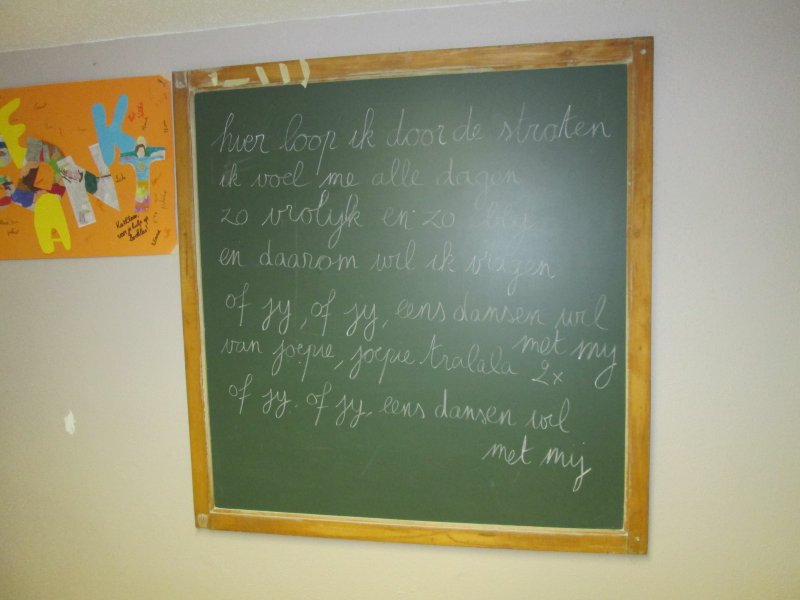 hier loop ik door de straten
ik voel me alle dagen
zo vrolijk en zo
en daarom wil ik vragen
of jy, of jy, eens dansen wil
met mij
van joepie, joepie tralala 2x
of jy. of jy. eens dansen wil
met mij